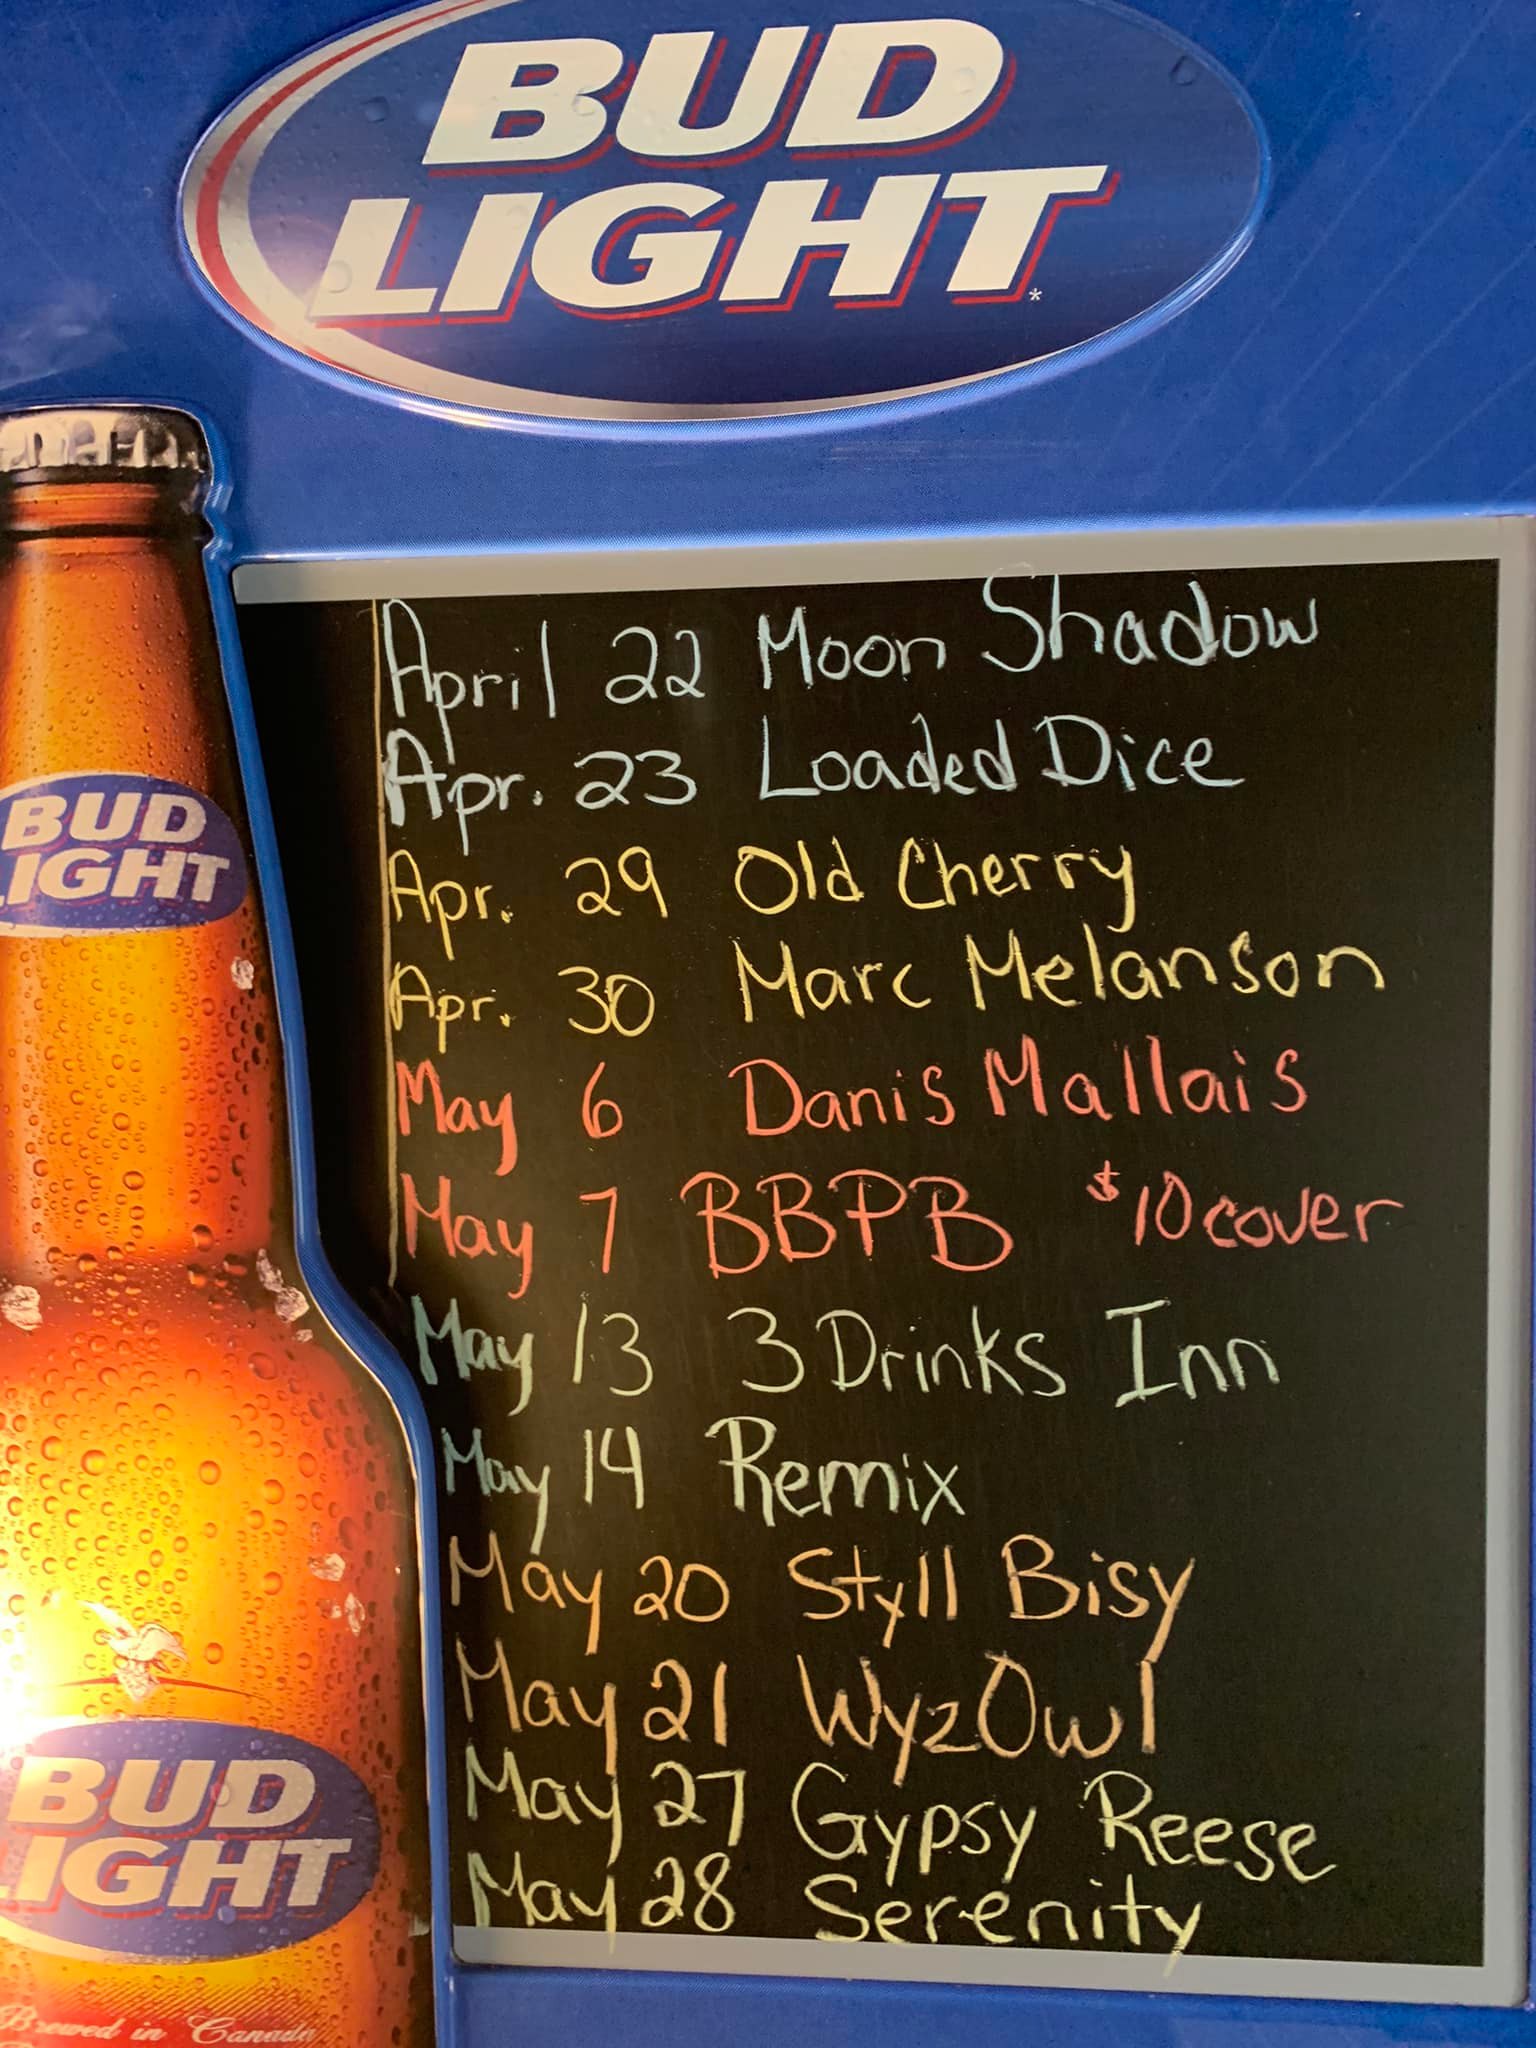 BUD
LIGHT
April 22 Moon Shadow
Apr. 23 Loaded Dice
Apr. 29 Old Cherry
Apr. 30 Marc Melanson
May 6 Danis Mallais
May 7 BBPB $10 cover
May 13 3 Drinks Inn
May 14 Remix
May 20 Styll Bisy
May 21 WyzOwl
May 27 Gypsy Reese
May 28 Serenity
BUD
LIGHT
BUD
LIGHT
Brewed in Canada